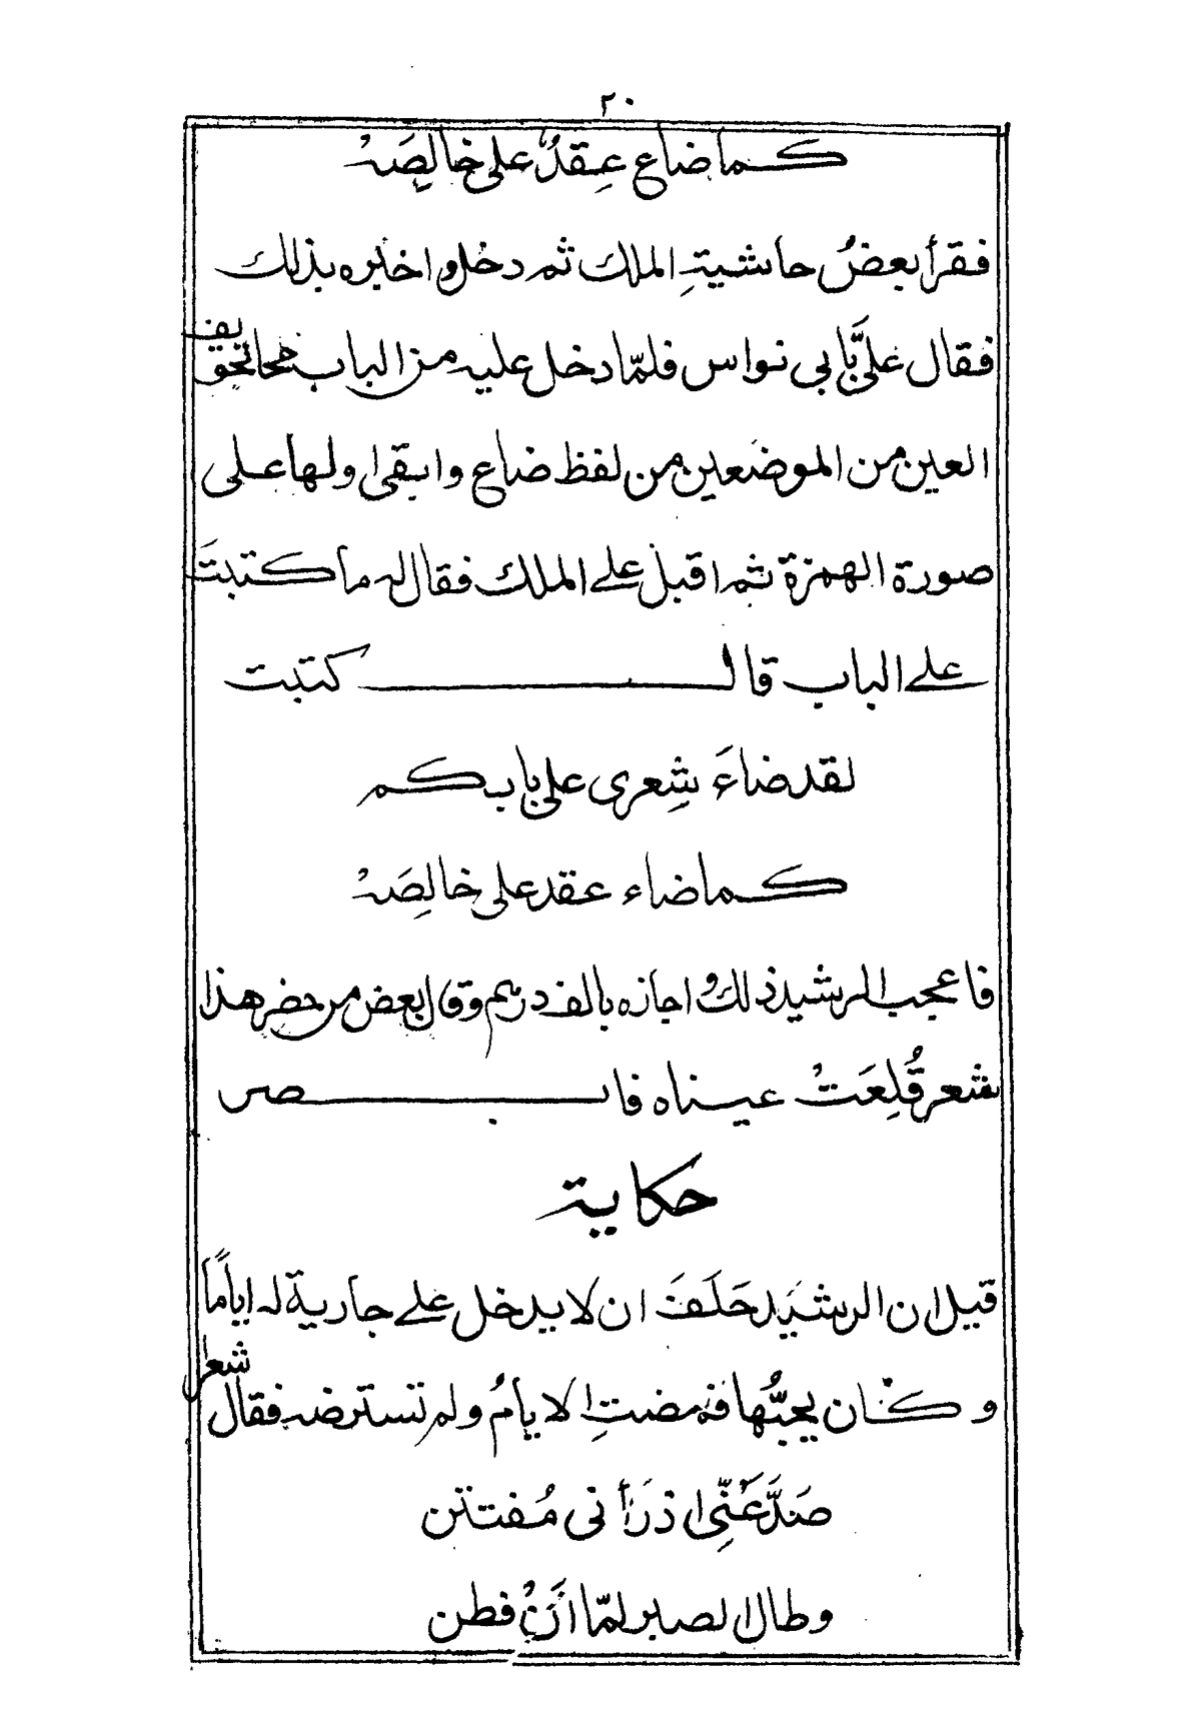 ٢٠
كما ضاع عِقدٌ على خالِصَهْ
فقرأ بعضُ حاشيةِ الملك ثم دخل واخبره بذلك
فقال عليَّ بابي نواس فلمّا دخل عليه من الباب محا تجويف
العين من الموضعين من لفظ ضاع وابقى اولها على
صورة الهمزة ثم اقبل على الملك فقال له ما كتبتَ
على الباب قال كتبت
لقد ضاءَ شِعرى على بابكم
كما ضاء عقد على خالِصَهْ
فاعجب الرشيد ذلك واجازه بالف درهم وقال بعض من حضر هذا
شعر قُلِعَتْ عيناه فابصر
حكاية
قيل ان الرشيد حَلَفَ ان لا يدخل على جارية له اياماً
وكان يحبُّها فمضتِ الايامُ ولم تسترضه فقال شعر
صَدَّ عَنِّى اذ رَأَنى مُفتتن
وطال الصبر لمّا أنْ فطن